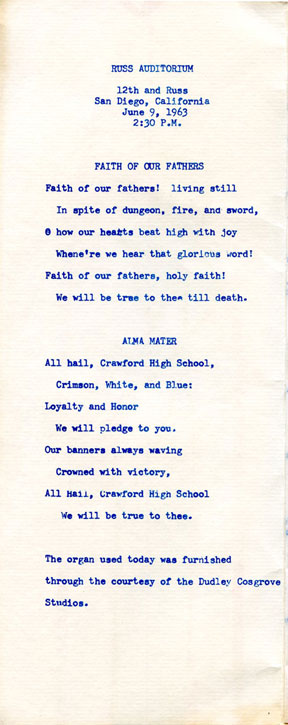 RUSS AUDITORIUM
12th and Russ
San Diego, California
June 9, 1963
2:30 P.M.
FAITH OF OUR FATHERS
Faith of our fathers! living still
In spite of dungeon, fire, and sword,
O how our hearts beat high with joy
Whene're we hear that glorious word!
Faith of our fathers, holy faith!
We will be true to thee till death.
ALMA MATER
All hail, Crawford High School,
Crimson, White, and Blue:
Loyalty and Honor
We will pledge to you.
Our banners always waving
Crowned with victory,
All Hail, Crawford High School
We will be true to thee.
The organ used today was furnished
through the courtesy of the Dudley Cosgrove
Studios.